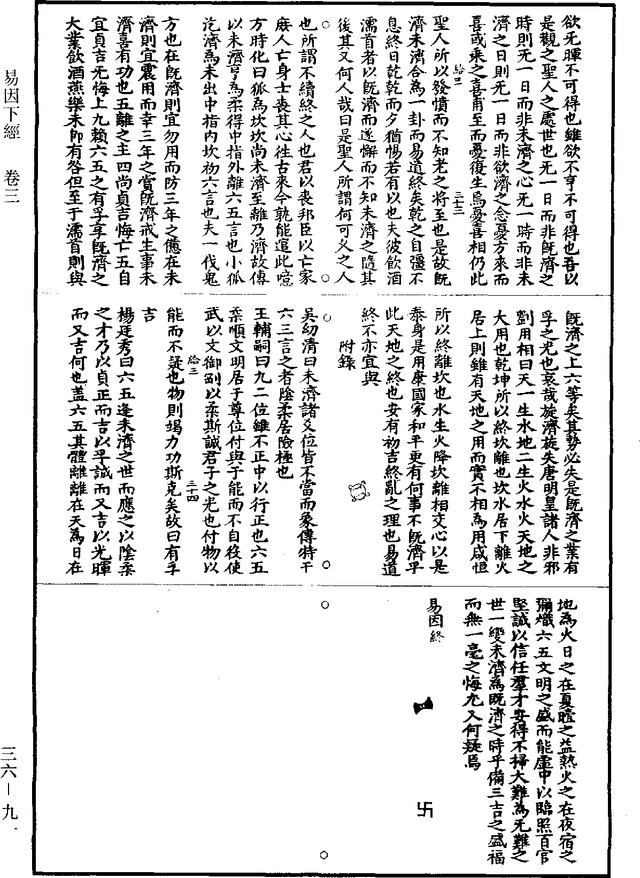 欲无暉不可得也雖欲不亨不可得也吾以
是觀之聖人之處世也无一日而非既濟之
時則无一日而非未濟之心无一時而非未
濟之日則无一日而非欲濟之念憂方來而
喜或乘之喜甫至而憂復生焉憂喜相仍此
聖人所以發憤而不知老之將至也是故既
濟未濟合為一卦而易道終矣乾之自彊不
息終日乾乾而夕猶惕若有以也夫彼飲酒
濡首者以既濟而遂懈而不知未濟之隨其
後其又何人哉曰是聖人所謂何可久之人
也所謂不續終之人也君以喪邦臣以亡家
庶人亡身士喪其心往古來今孰能逭此噫
方時化曰狐為坎坎尚未濟至離乃濟故傳
以未濟亨為柔得中指外離六五言也小狐
汔濟為未出中指内坎初六言也夫一伐鬼
方也在既濟則宜勿用而防三年之憊在未
濟則宜震用而幸三年之賞既濟戒生事未
濟喜有功也五離之主四尚貞吉悔亡五自
宜貞吉无悔上九賴六五之有孚享既濟之
大業飲酒燕樂未即有咎但至于濡首則與
既濟之上六等矣其勢必失是既濟之業有
孚之光也哀哉旋濟旋失唐明皇諸人非邪
劉用相曰天一生水地二生火水火天地之
大用也乾坤所以終坎離也坎水居下離火
居上則雖有天地之用而實不相為用咸恒
所以終離坎也水生火降坎離相交心以是
泰身是用康國家和平更有何事不既濟乎
此天地之終也安有初吉終亂之理也易道
終不亦宜與
附錄
吳幼清曰未濟諸爻位皆不當而象傳特于
六三言之者陰柔居險極也
王輔嗣曰九二位雖不正中以行正也六五
柔順文明居于尊位付與于能而不自役使
武以文御剛以柔斯誠君子之光也付物以
能而不疑也物則竭力功斯克矣故曰有孚
吉
楊廷秀曰六五逢未濟之世而應之以陰柔
之才乃以貞正而吉以孚誠而又吉以光暉
而又吉何也蓋六五其體離離在天為日在
地為火日之在夏曀之益熱火之在夜宿之
彌熾六五文明之盛而能虛中以臨照百官
堅誠以信任羣才安得不掃大難為无難之
世一變未濟為既濟之時乎備三吉之盛福
而無一毫之悔尤又何疑焉
易因終
卍
易因下經 卷三
三六－九一